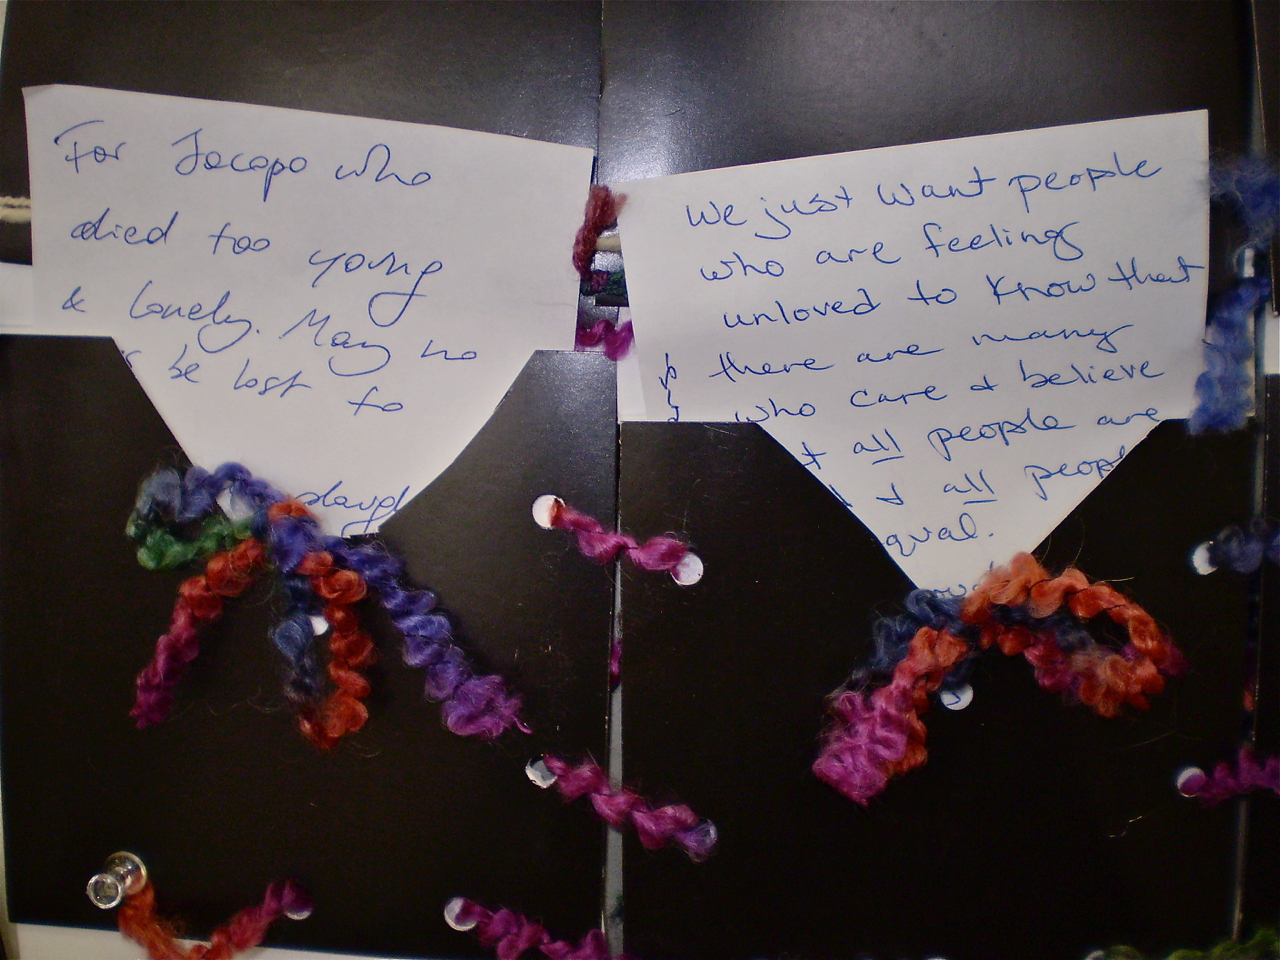 For Jacopo who
died too young
& lonely. May no
be lost to
We just want people
who are feeling
unloved to know that
there are many
who care & believe
all people are
& all
qual.